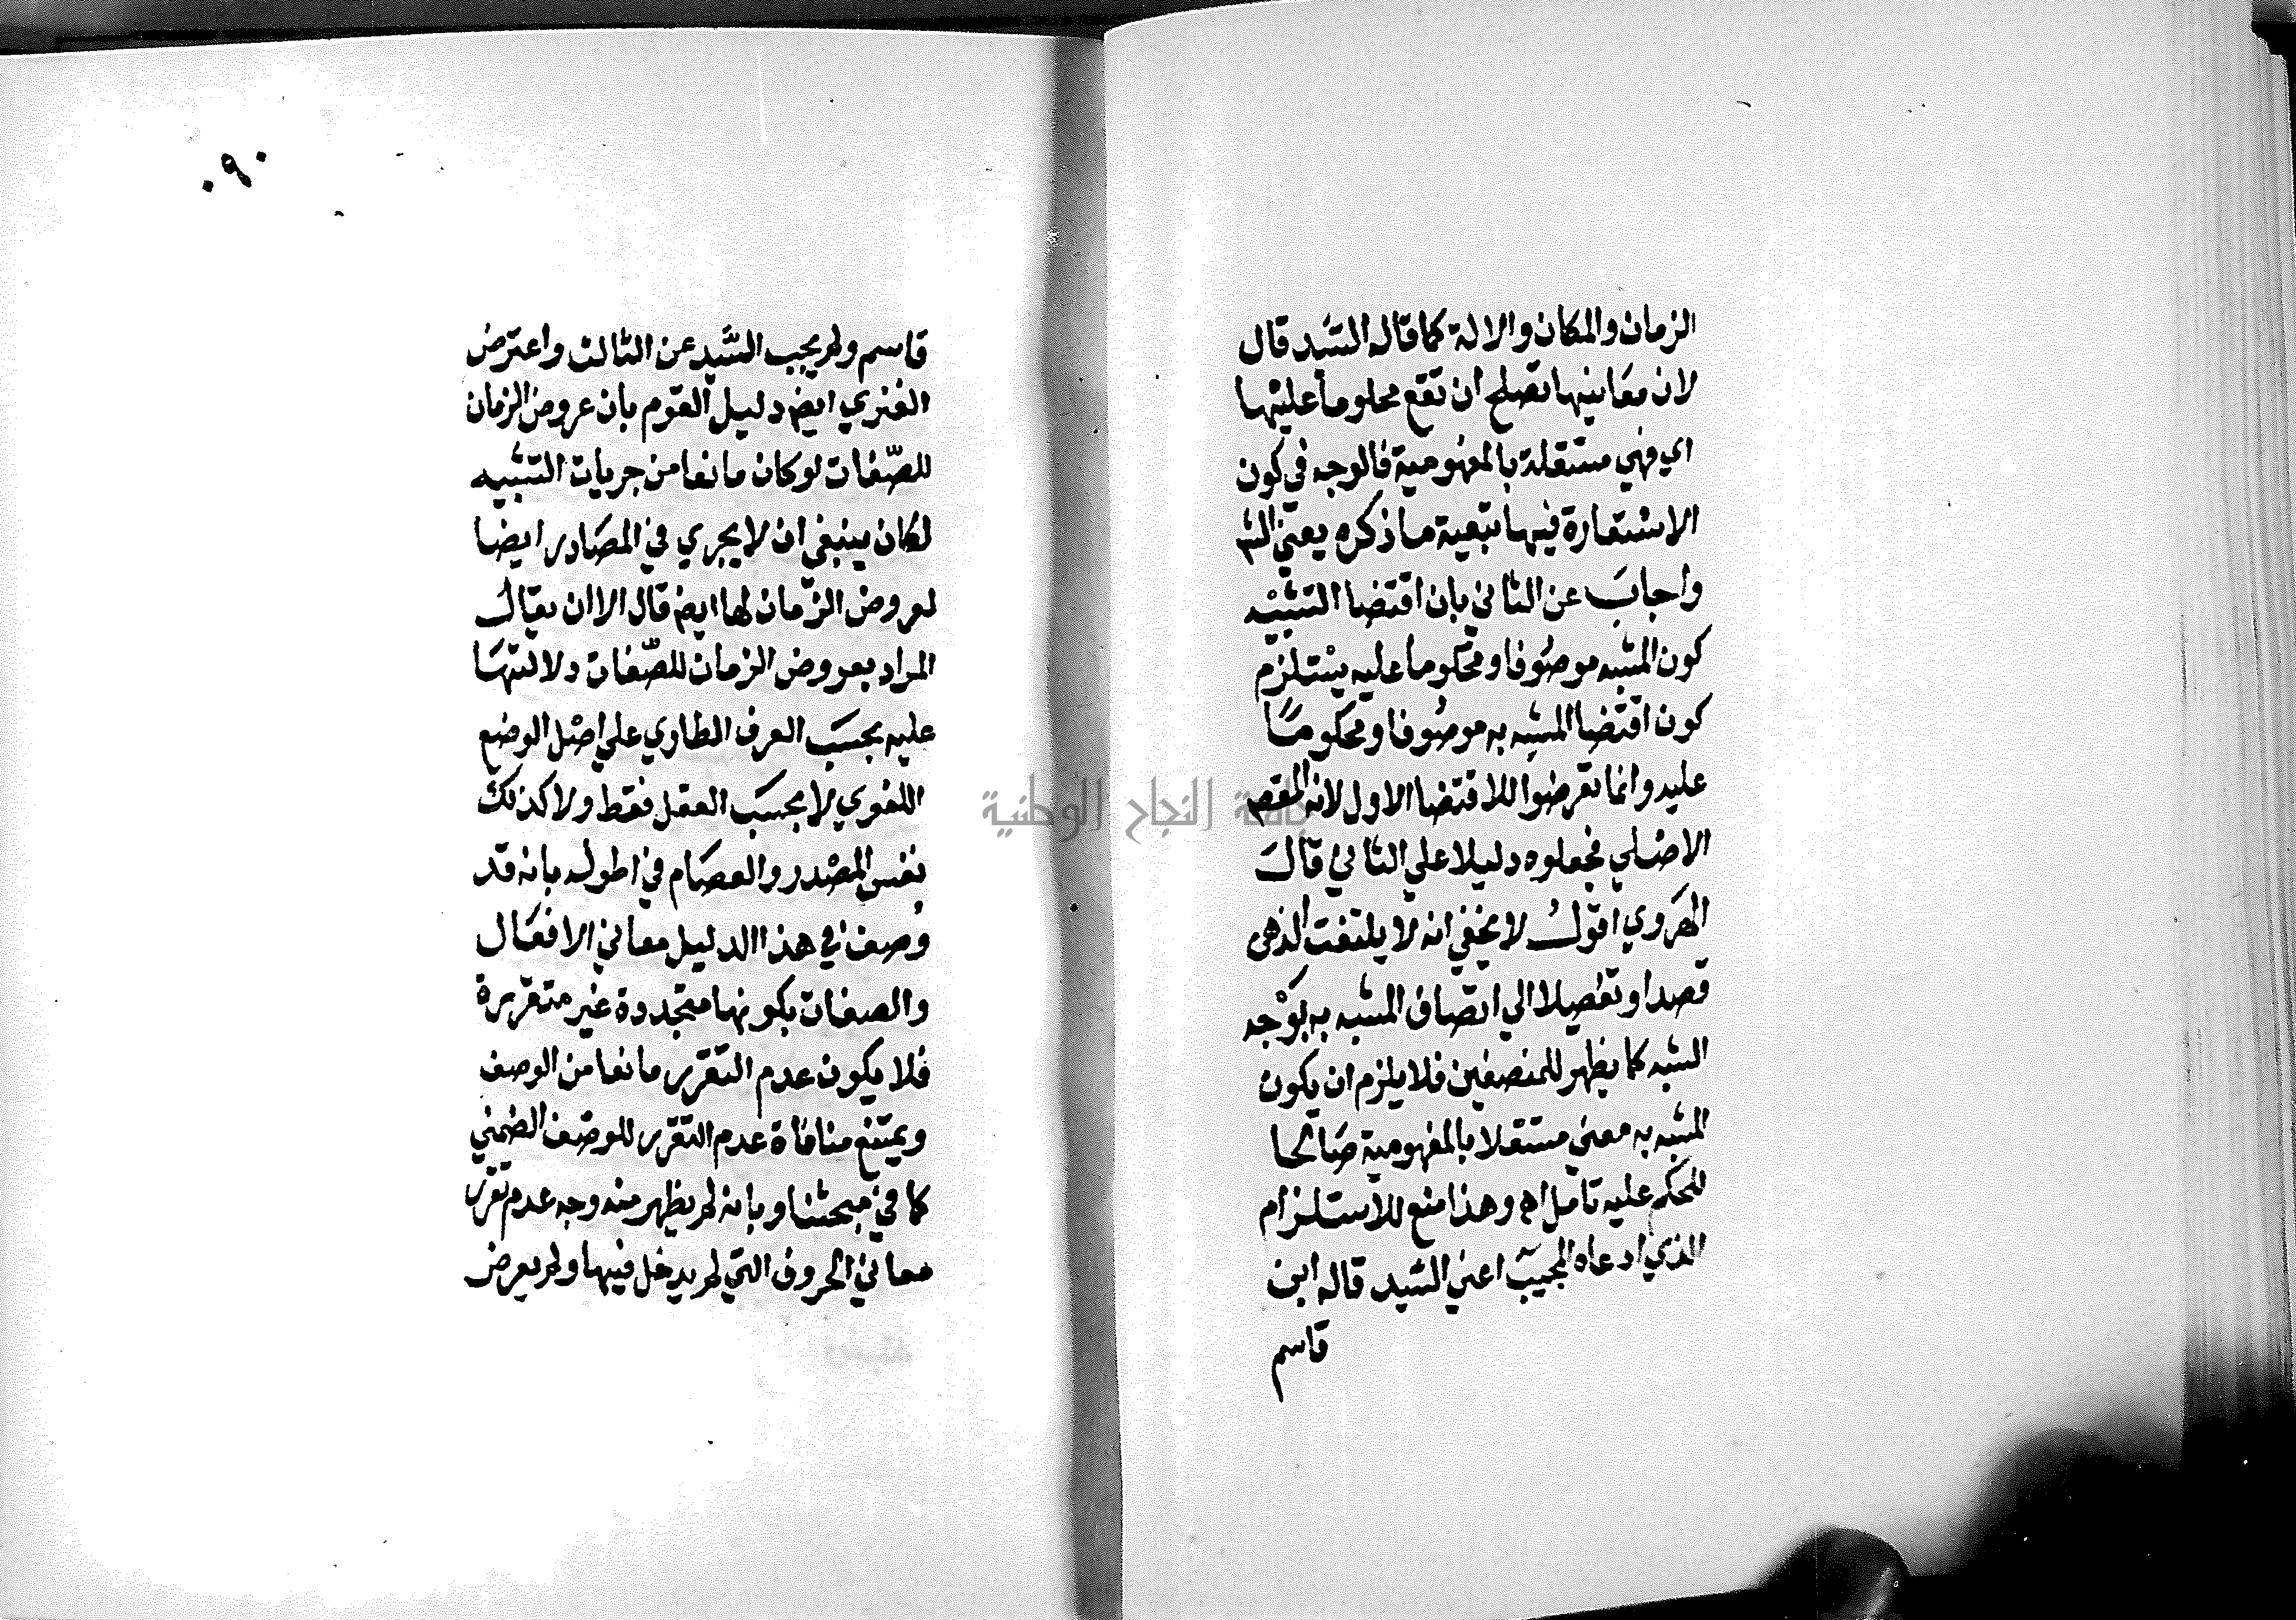 الزمان والمكان والالة كما قاله السيد قال
لان معانيها تصلح ان تقع محكوما عليها
اي فهي مستقلة بالمفهومية فالوجه في كون
الاستعارة فيها تبعية ما ذكره يعني الش
واجاب عن الثاني بان اقتضا التشبيه
كون المشبه موصوفا ومحكوما عليه يستلزم
كون اقتضا المشبه به موصوفا ومحكوما
عليه وانما تعرضوا للاقتضا الاول لانه المقص
الاصلي فجعلوه دليلا على الثاني قال
الهروي اقول لا يخفى انه لا يلتفت الذهن
قصدا وتفصيلا الي اتصاف المشبه به بوجه
الشبه كما يظهر للمنصفين فلا يلزم ان يكون
المشبه به معنى مستقلا بالمفهومية صالحا
للحكم عليه تامل اه وهذا منع للاستلزام
الذي ادعاه المجيب اعني السيد قاله ابن
قاسم
٠٩٠
قاسم ولم يجب السيد عن الثالث واعترض
الفنري ايض دليل القوم بان عروض الزمان
للصفات لو كان مانعا من جريات التشبيه
لكان ينبغي ان لا يجري في المصادر ايضا
لعروض الزمان لها ايض قال الا ان يقال
المراد بعروض الزمان للصفات دلالتها
عليه بحسب العرف الطاري على اصل الوضع
اللغوي لا بحسب العقل فقط ولا كذلك
نفس المصدر والعصام في اطوله بانه قد
وصف في هذا الدليل معاني الافعال
والصفات بكونها متجددة غير متقررة
فلا يكون عدم التقرر مانعا من الوصف
ويمتنع منافاة عدم التقرر للوصف الضمني
كما في مبحثنا وبانه لم يظهر منه وجه عدم تقرر
معاني الحروف التي لم يدخل فيها ولم يعرض
جامعة النجاح الوطنية